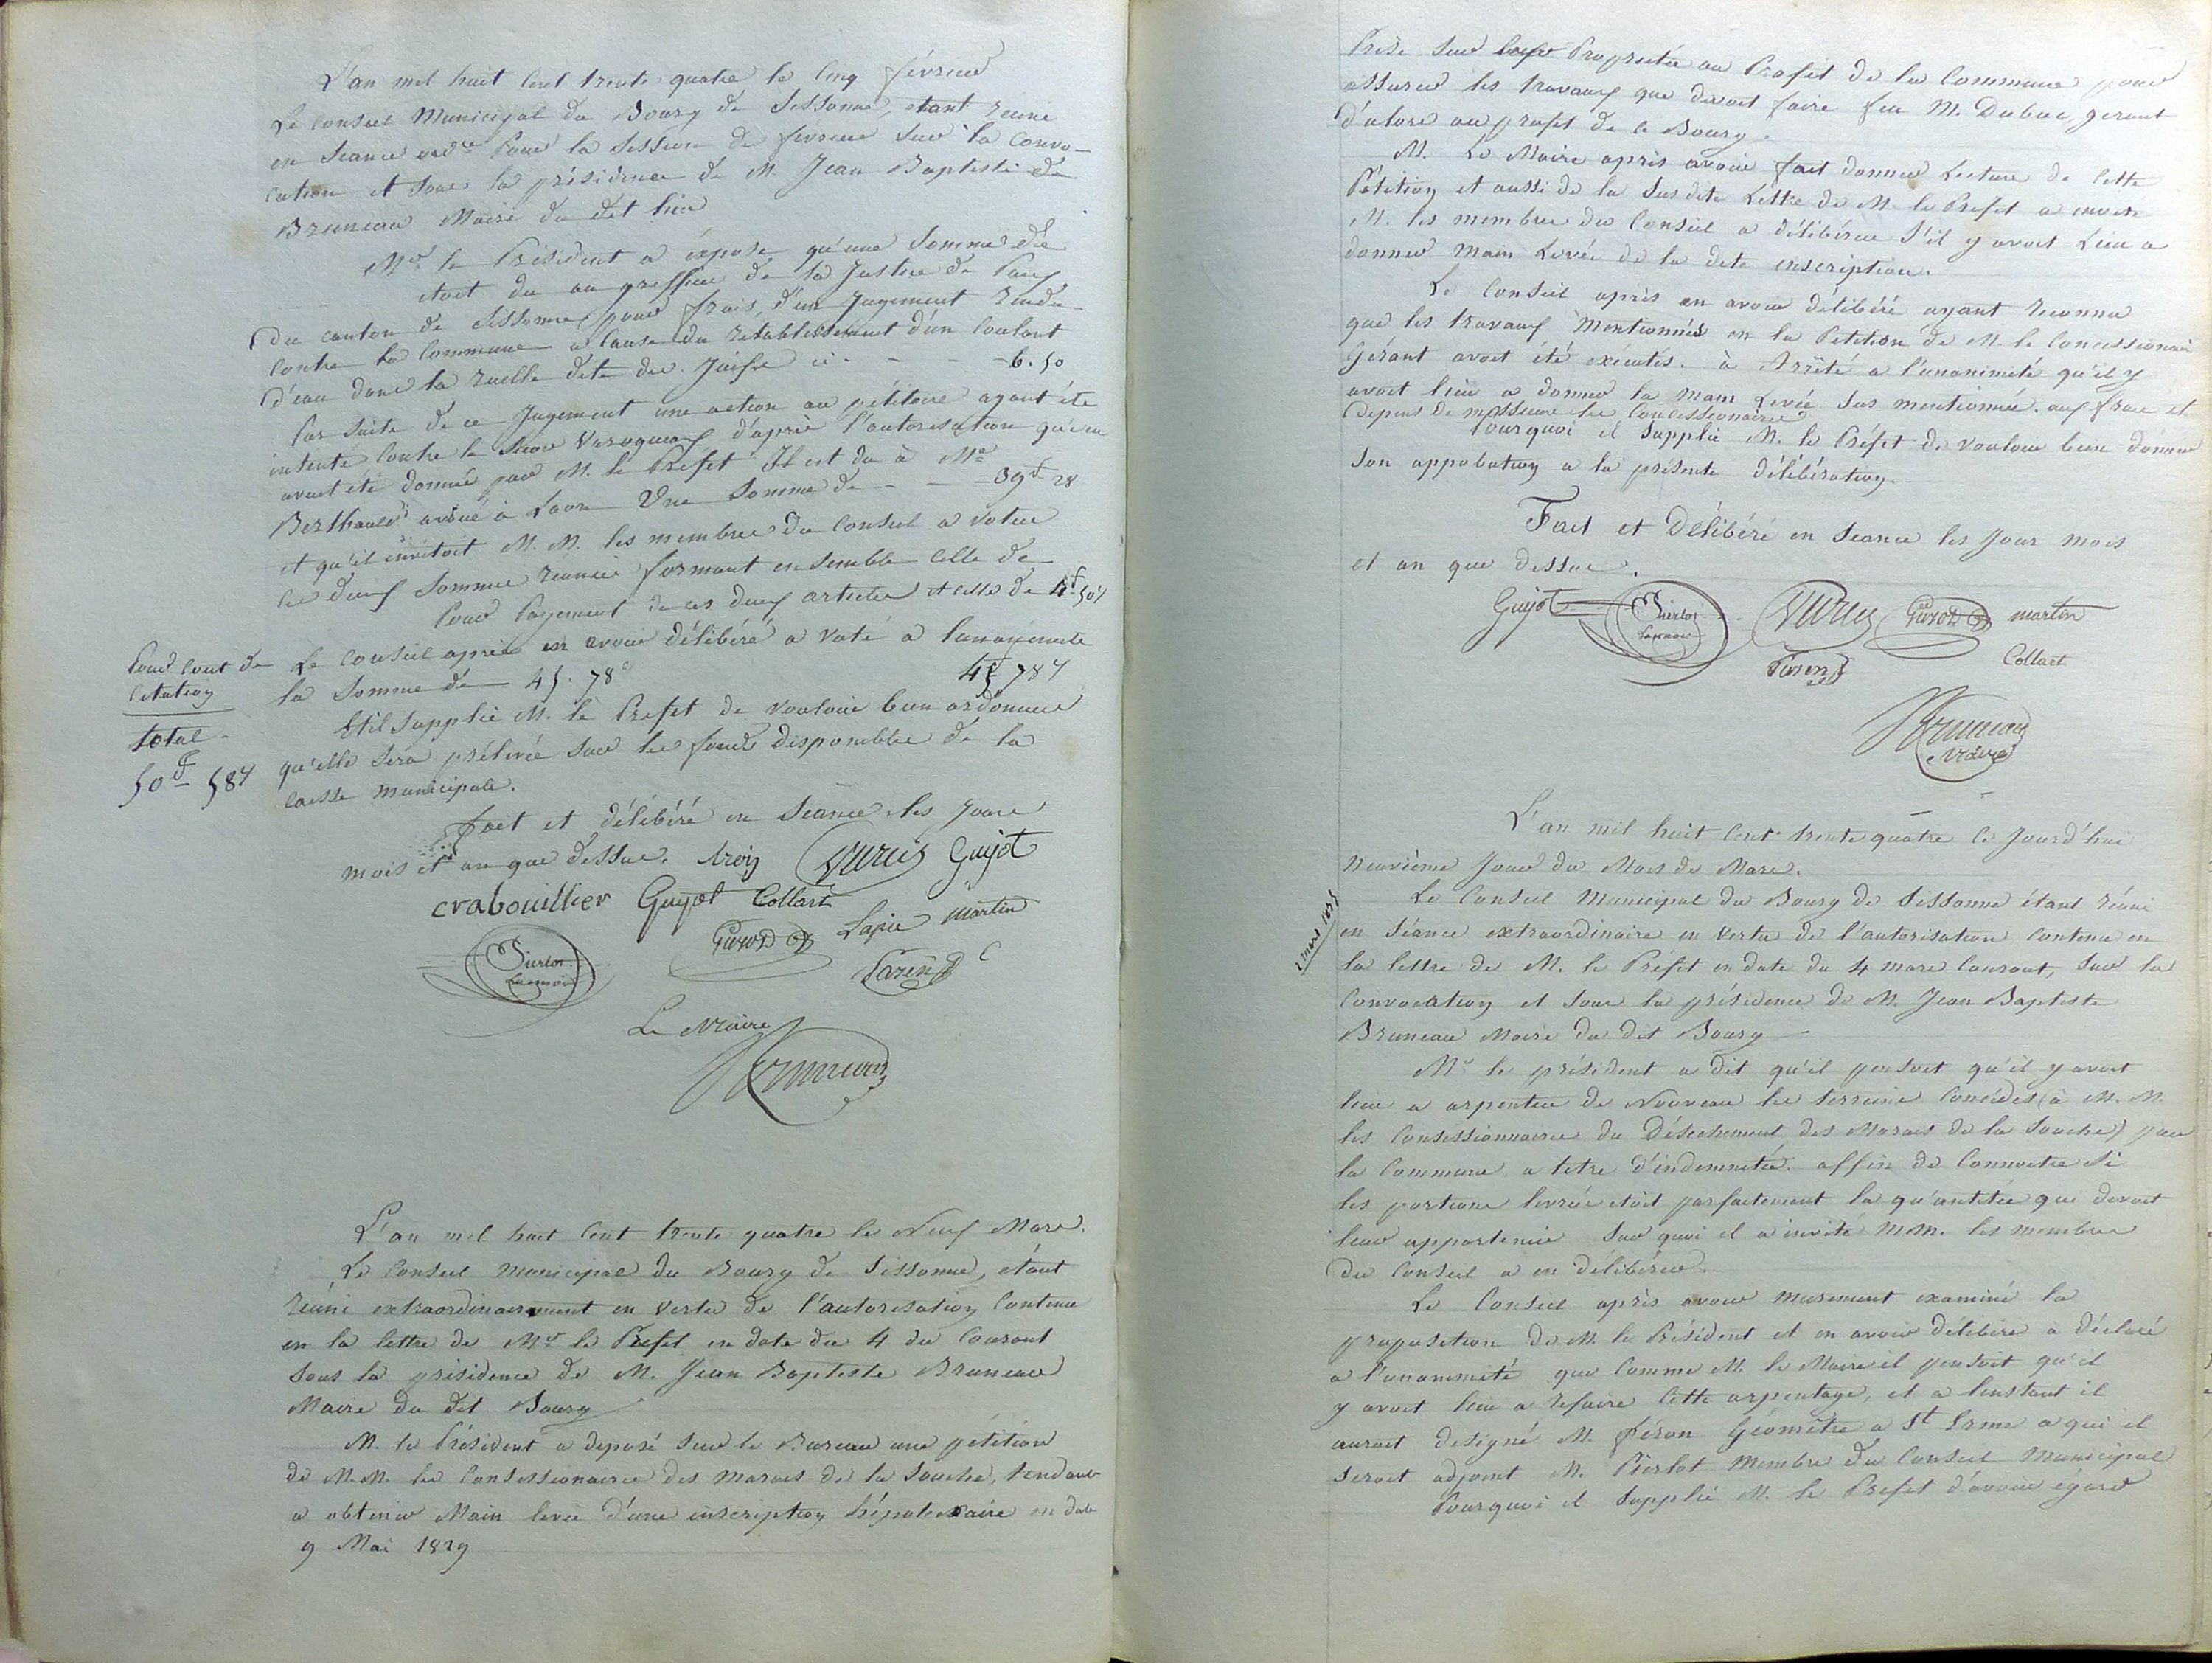 L'an mil huit Cent trente quatre le Cinq février
Le Conseil Municipal du Bourg de Sissonne, etant reuni
en Seance ord.re Pour la Session de fevrier Sur la Convo-
cation et Sous la présidence de M. Jean Baptiste de
Bruneau Maire du dit lieu
Mr. le Président a éxposé qu'une Somme de
etoit du au greffier de la Justice de Paix
du canton de Sissonne, pour frais, d'un Jugement rendu
Contre la Commune a Cause du retablissement d'un Coulant
d'eau dans la ruelle dite des Juifs ci - - - - 6. 50
Par Suite de ce Jugement une action au pétitoire ayant été
intenté Contre le Sieur d'après l'autorisation qui en
avoit été donnée par M. le Prefet Il est du à Me
Berthauld avoué à Laon Une Somme de - - - 39f 28
et qu'il invitoit M. M. les membres du Conseil a voter
les deux Sommes reunies formant ensemble Celle de
Pour Payement de ces deux articles et celle de 4f. 50c
Pour Cout de
Citation
Total
50f 58c
Le Conseil après en avoir délibéré a voté a l'unanimité
la Somme de 45. 78c 45 78c
Et il Supplie M. le Prefet de vouloir bien ordonner
qu'elle Sera prélevée Sur les fonds disponibles de la
Caisse municipale.
fait et délibéré en Séance les Jour
mois et an que dessus. Guyot
crabouillier Guyot Collart
Pierlot Lapie martin
Le Maire
Bruneau
L'an mil huit Cent trente quatre le Neuf Mars.
Le Conseil Municipal du Bourg de Sissonne, étant
réuni extraordinairement en vertu de l'autorisation Contenue
en la lettre de Mr le Préfet en date du 4 du Courant
Sous la présidence de M. Jean Baptiste Bruneau
Maire du dit Bourg
M. le Président a déposé Sur le Bureau une pétition
de M.M. les Consessionaires des marais de la Souche, tendant
a obtenir Main levée d'une inscription hépotécaire en date
9 Mai 1829
Prise Sur Propriétée au Profit de la Commune pour
assurer les travaux que devoit faire feu M. Dubuc, gerant
d'alors au profit de ce Bourg.
M. Le Maire après avoir fait donner Lecture de Cette
Pétition et aussi de la Susdite Lettre de M. le Préfet a invité
M. les membres du Conseil a délibérer S'il y avoit Lieu a
donner main Levée de la dite inscription.
Le Conseil après en avoir délibéré ayant reconnu
que les travaux mentionnés en la Petition de M. le Concessionair
Gérant avoit été exécutés. à Arrêté a l'unanimité qu'il y
avoit lieu a donner la main Levée Sus mentionnée. aux frais et
depens de messieurs les Concessionaires
Pourquoi il Supplie M. le Préfet de vouloir bien donner
Son approbation a la présente délibération.
Fait et Délibéré en Seance les Jour mois
et an que dessus.
Guyot Pierlot martin
Collart
Bruneau
Maire
L'an mil huit Cent trente quatre Ce Jourd'hui
Neuvième Jour du Mois de Mars.
Le Conseil Municipal du Bourg de Sissonne étant réuni
en Séance extraordinaire en vertu de l'autorisation Contenu en
la lettre de M. le Préfet en date du 4 mars Courant, Sur la
Convocation et Sous la présidence de M. Jean Baptiste
Bruneau Maire du dit Bourg
Mr le président a dit qu'il pensoit qu'il y avoit
lieu a arpenter de Nouveau les terrains Concédés (à M. M.
les Consessionnaires du Désechement des Marais de la Souche) par
la Commune a titre d'indemnitée. affin de Connoitre Si
les portions livrées etoit parfaitement la qu'antitée qui devoit
leur appartenir Sur quoi il a invité M.M. les membres
du Conseil a en délibérer.
Le Conseil après avoir murement examiné la
proposition de M. le Président et en avoir délibéré à déclaré
a l'unanimité que Comme M. le Maire il pensoit qu'il
y avoit lieu a refaire Cette arpentage, et a l'instant il
auroit designé M. féron Géomètre a St Erme a qui il
Seroit adjoint M. Pierlot Membre du Conseil Municipal
Pourquoi il Supplie M. le Préfet d'avoir égard